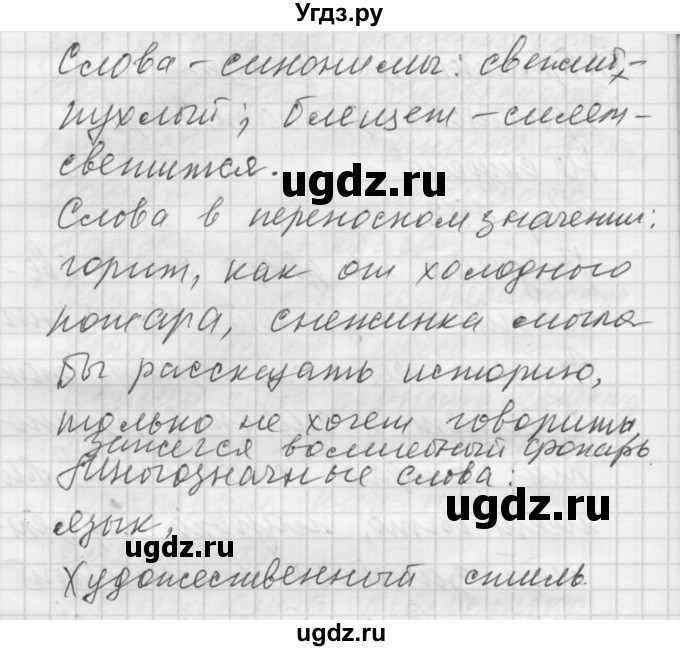 Угдз.ру
Слова-синонимы: свежий,-
пухлый; блещет-сияет-
светится.
ugdz.ru
Слова в переносном значении:
горит, как от холодного
пожара, снежинка могла
бы рассказать историю,
только не хочет говорить,
зажегся волшебный фонарь
Многозначные слова:
ugdz.ru
язык,
ugdz.ru
Художественный стиль
ugdz.ru